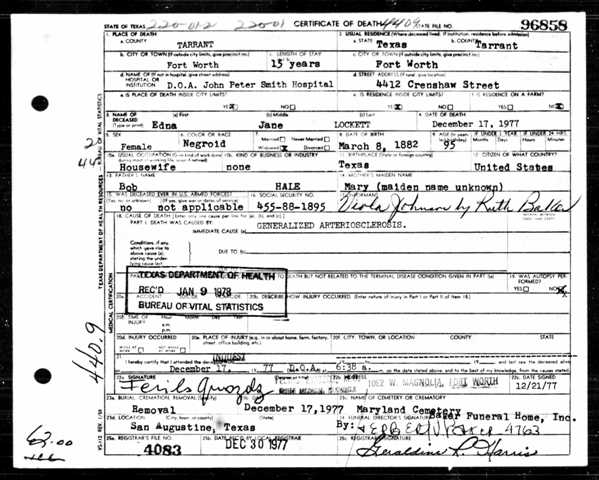 STATE OF TEXAS 220-012 220-01 CERTIFICATE OF DEATH 440.9 STATE FILE NO. 96858
1. PLACE OF DEATH 2. USUAL RESIDENCE (Where deceased lived. If institution: residence before admission)
a. COUNTY TARRANT a. STATE Texas b. COUNTY Tarrant
b. CITY OR TOWN (If outside city limits, give precinct no.) c. LENGTH OF STAY c. CITY OR TOWN (If outside city limits, give precinct no.)
Fort Worth 15 years Fort Worth
d. NAME OF (If not in hospital, give street address) d. STREET ADDRESS (If rural, give location)
HOSPITAL OR INSTITUTION D.O.A. John Peter Smith Hospital 4412 Crenshaw Street
e. IS PLACE OF DEATH INSIDE CITY LIMITS? e. IS RESIDENCE INSIDE CITY LIMITS? f. IS RESIDENCE ON A FARM?
YES NO YES NO YES NO
3. NAME OF DECEASED (Type or print) (a) First (b) Middle (c) Last 4. DATE OF DEATH
Edna Jane LOCKETT December 17, 1977
5. SEX 6. COLOR OR RACE 7. Married Never Married 8. DATE OF BIRTH 9. AGE
Female Negroid Widowed Divorced March 8, 1882 95
10a. USUAL OCCUPATION 10b. KIND OF BUSINESS OR INDUSTRY 11. BIRTHPLACE (State or foreign country) 12. CITIZEN OF WHAT COUNTRY?
Housewife none Texas United States
13. FATHER'S NAME 14. MOTHER'S MAIDEN NAME
Bob HALE Mary (maiden name unknown)
15. WAS DECEASED EVER IN U.S. ARMED FORCES? 16. SOCIAL SECURITY NO. 17. INFORMANT
no not applicable 455-88-1895 Viola Johnson by Ruth
18. CAUSE OF DEATH (Enter only one cause per line for (a), (b), and (c).)
PART I. DEATH WAS CAUSED BY: GENERALIZED ARTERIOSCLEROSIS.
IMMEDIATE CAUSE (a)
Conditions, if any, which gave rise to above cause (a), stating the underlying cause last. DUE TO (b)
DEATH BUT NOT RELATED TO THE TERMINAL DISEASE CONDITION GIVEN IN PART I(a) 19. WAS AUTOPSY PERFORMED?
YES NO
TEXAS DEPARTMENT OF HEALTH
REC'D JAN 9 1978
BUREAU OF VITAL STATISTICS
20a. ACCIDENT 20b. DESCRIBE HOW INJURY OCCURRED. (Enter nature of injury in Part I or Part II of Item 18.)
20c. TIME OF INJURY a.m. p.m.
20d. INJURY OCCURRED 20e. PLACE OF INJURY (e.g. in or about home, farm, factory, street, office building, etc.) 20f. CITY, TOWN, OR LOCATION COUNTY STATE
21. I hereby certify that I attended the deceased
INQUEST
December 17, 77 D.O.A. 6:38 a. m. on the date stated above; and to the best of my knowledge, from the causes stated.
22a. SIGNATURE 22b. ADDRESS 22c. DATE SIGNED
1062 W. MAGNOLIA, FORT WORTH 12/21/77
23a. BURIAL, CREMATION, REMOVAL 23b. DATE 23c. NAME OF CEMETERY OR CREMATORY
Removal December 17, 1977 Maryland Cemetery
23d. LOCATION (City, town, or county) (State) 24. FUNERAL DIRECTOR'S SIGNATURE
Baker Funeral Home, Inc.
San Augustine, Texas By: 4763
25a. REGISTRAR'S FILE NO. 25b. DATE REC'D BY LOCAL REGISTRAR 25c. REGISTRAR'S SIGNATURE
4083 DEC 30 1977 Geraldine R. Harris
440.9
TEXAS DEPARTMENT OF HEALTH RESOURCES
BUREAU OF VITAL STATISTICS
MEDICAL CERTIFICATION